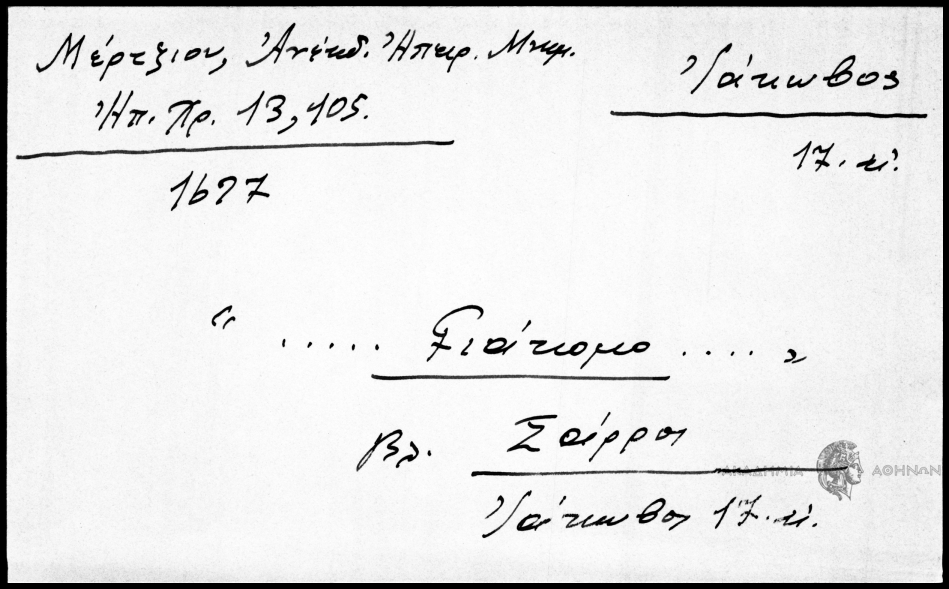 Μέρτζιου, Ἀνέκδ. Ἠπειρ. Μνημ.
Ἠπ. Χρ. 13, 105.
1677
Ἰάκωβος
17. αἰ.
“ ..... Γιάκομο ..... „
βλ. Σαίρρος
Ἰάκωβος 17. αἰ.
ΑΚΑΔΗΜΙΑ ΑΘΗΝΩΝ